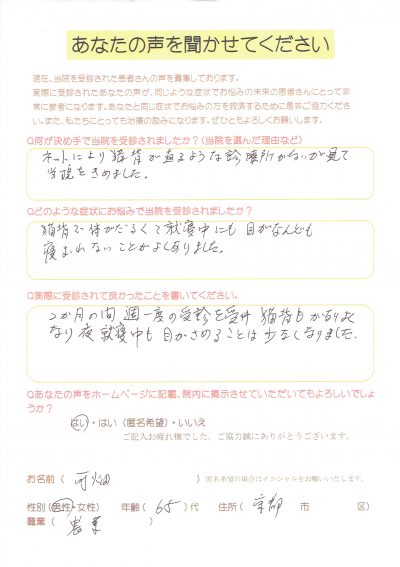 あなたの声を聞かせてください
現在、当院を受診された患者さんの声を募集しております。
実際に受診されたあなたの声が、同じような症状でお悩みの未来の患者さんにとって非
常に参考になります。あなたと同じ症状でお悩みの方を救済するために是非ご協力くださ
い。また、私たちにとっても治療の励みになります。ぜひともよろしくお願いします。
Q何が決め手で当院を受診されましたか？(当院を選んだ理由など)
ネットにより猫背が直るような診療所がないか見て
当院をきめました。
Qどのような症状にお悩みで当院を受診されましたか？
猫背で体がだるくて就寝中にも目がなんども
寝まれないことがよくありました。
Q実際に受診されて良かったことを書いてください。
2か月の間 週一度の受診を受け 猫背も
なり夜就寝中も目がさめることは少なくなりました.
Qあなたの声をホームページに記載、院内に掲示させていただいてもよろしいでしょ
うか？
はい・はい（匿名希望）・いいえ
ご記入お疲れ様でした。ご協力誠にありがとうございます。
お名前（ 可畑 ）匿名希望の場合はイニシャルをお願いいたします。
性別（男性・女性） 年齢（ 65 ）代 住所（ 京都 市 区）
職業（ 農業 ）